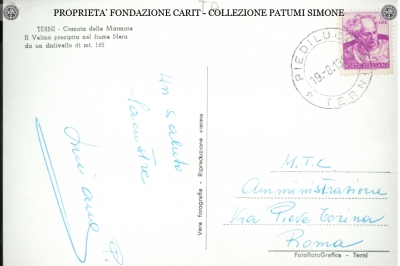 PROPRIETA' FONDAZIONE CARIT - COLLEZIONE PATUMI SIMONE
TERNI - Cascata delle Marmore
Il Velino precipita nel fiume Nera
da un dislivello di mt. 165
Un saluto
Vera fotografia - Riproduzione vietata
PIEDILUCO
19-8-1
TERNI
POSTE ITALIANE
M.T.C.
Amministrazione
Via Pieve Torina
Roma
FotoRotoGrafica - Terni